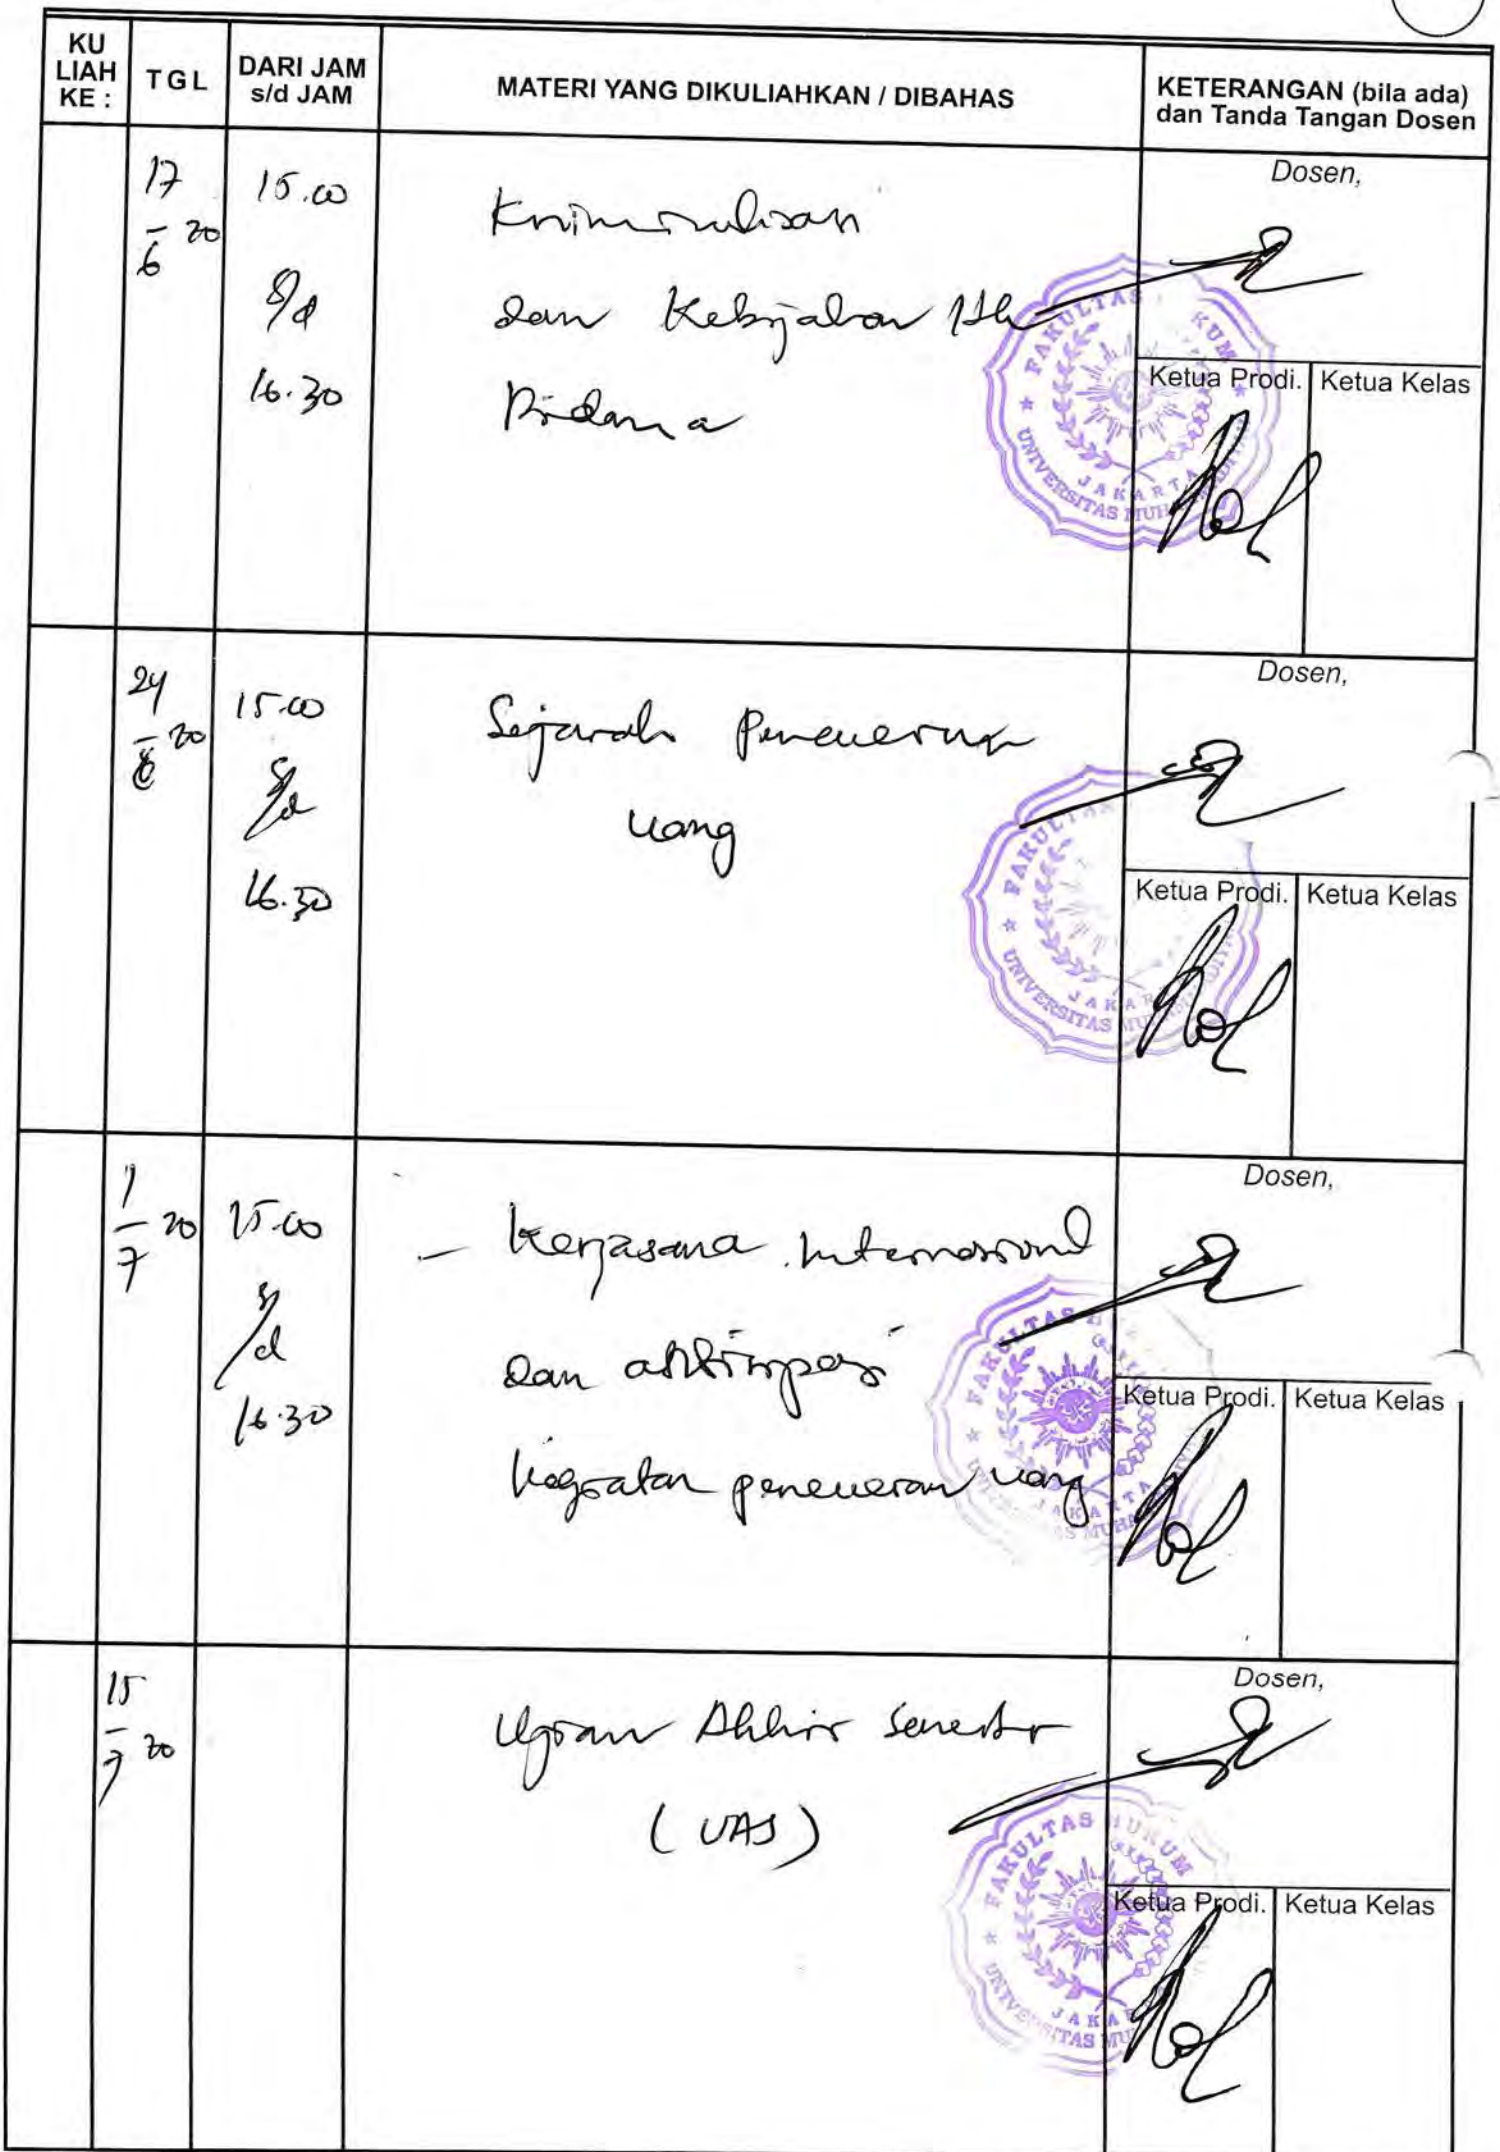 KU LIAH KE :
TGL
DARI JAM s/d JAM
MATERI YANG DIKULIAHKAN / DIBAHAS
KETERANGAN (bila ada) dan Tanda Tangan Dosen
17/6 20
15.00
s/d
16.30
Kriminalisasi
dan Kebijakan
Pidana
Dosen,
Ketua Prodi.
Ketua Kelas
FAKULTAS KUM
UNIVERSITAS MUH
JAKARTA
24/6 20
15.00
s/d
16.30
Sejarah Pencucian
uang
Dosen,
Ketua Prodi.
Ketua Kelas
FAKULTAS
UNIVERSITAS MU
JAKAR
1/7 20
15.00
s/d
16.30
- Kerjasama Internasional
dan antisipasi
kegiatan pencucian uang
Dosen,
Ketua Prodi.
Ketua Kelas
FAKULTAS
JAKARTA
MUHA
15/7 20
Ujian Akhir Semester
(UAS)
Dosen,
Ketua Prodi.
Ketua Kelas
FAKULTAS HUKUM
UNIVERSITAS MU
JAKA